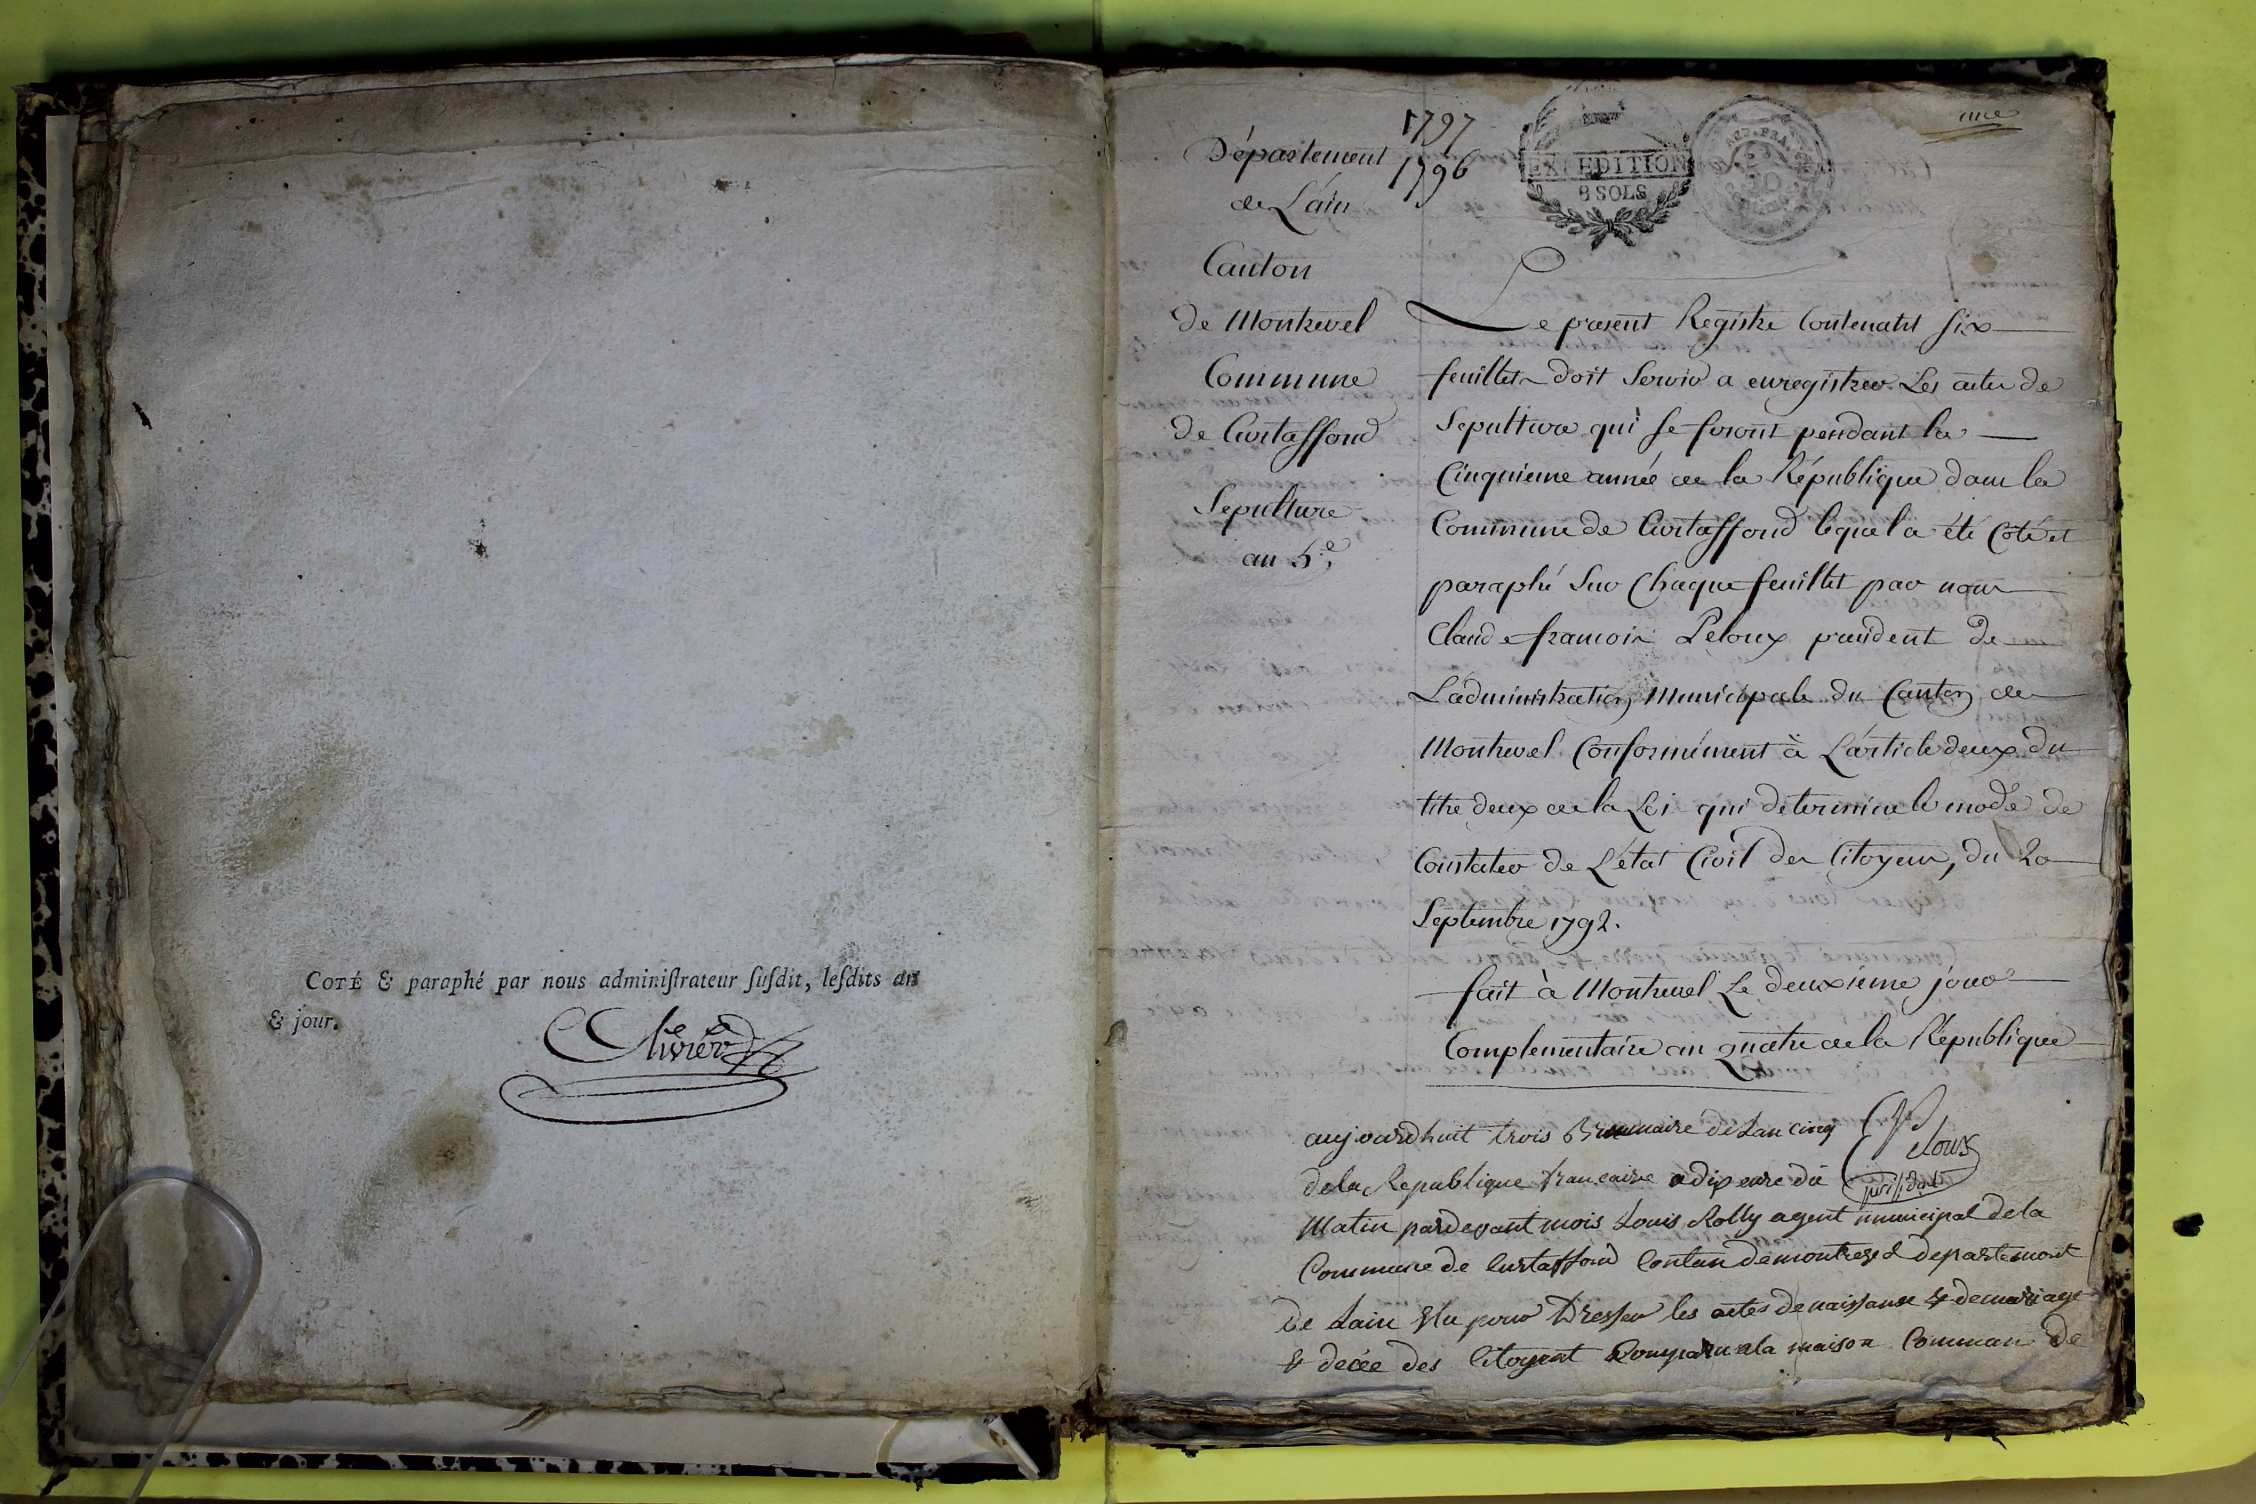 COTÉ & paraphé par nous adminiſtrateur ſuſdit, leſdits an
& jour.
Olivier
une
1797
1796
EXPEDITION
8 SOLS
Département
de L'ain
Canton
de Montrevel
Commune
de Curtaffond
Sepulture
an 5.e
Le present Registre Contenant six
feuillets doit servir a enregistrer Les actes de
Sepulture qui se feront pendant la
Cinquieme année de la République dans la
Commune de Curtaffond lequel a été Coté et
paraphé sur Chaque feuillet par nous
Claude francois Peloux president de
L'administration Municipale du Canton de
Montrevel Conformément à L'article deux du
titre deux de la Loi qui determine le mode de
Constater de L'état Civil des Citoyens, du 20
Septembre 1792.
fait à Montrevel Le deuxième jour
Complementaire an quatre de la République
Peloux
presidt
aujourdhuit trois Brumaire de Lan cinq
de la Republique francaise a dix eure du
Matin pardevant mois Louis Rolly agent municipal de la
Commune de Curtaffond Contun de montrevel departement
De Lain Elu pour Dresser les actes de naissance & de mariage
& decée des Citoyent Comparu a la maison Commun de